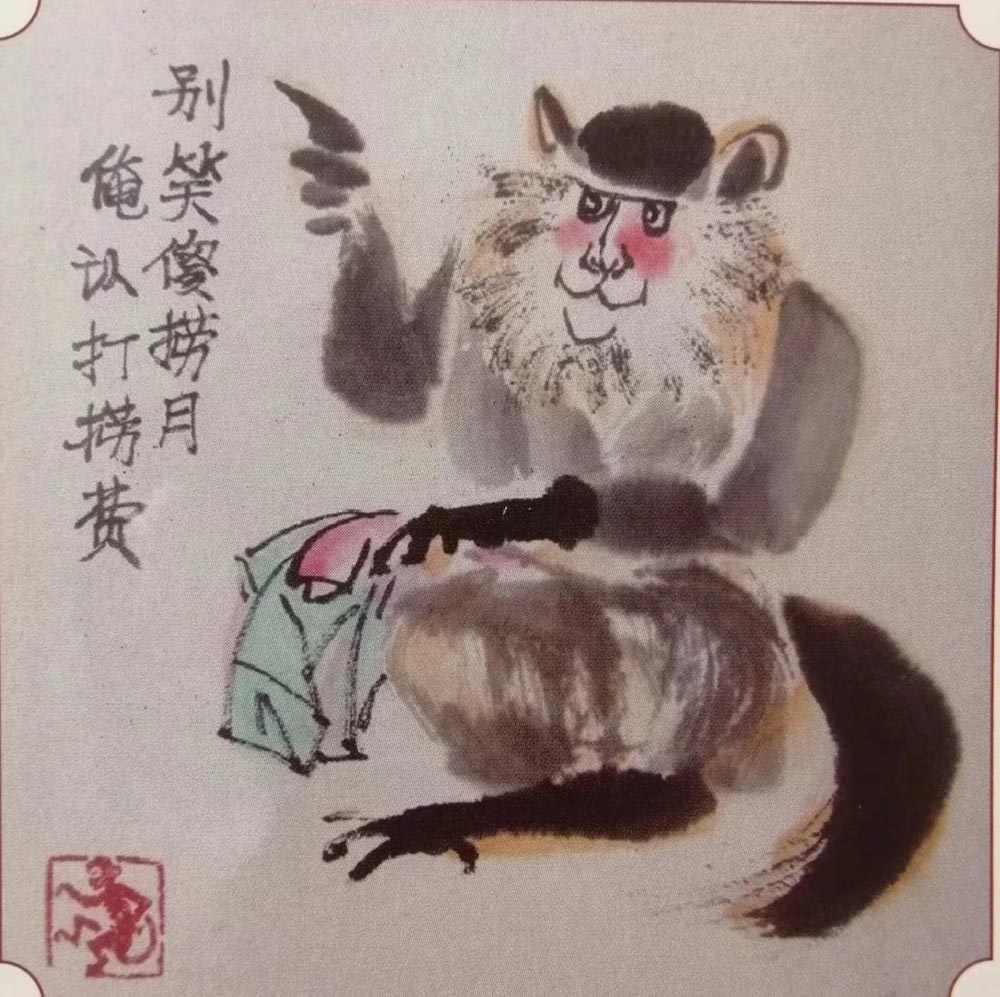 别笑傻捞月
俺认打捞费